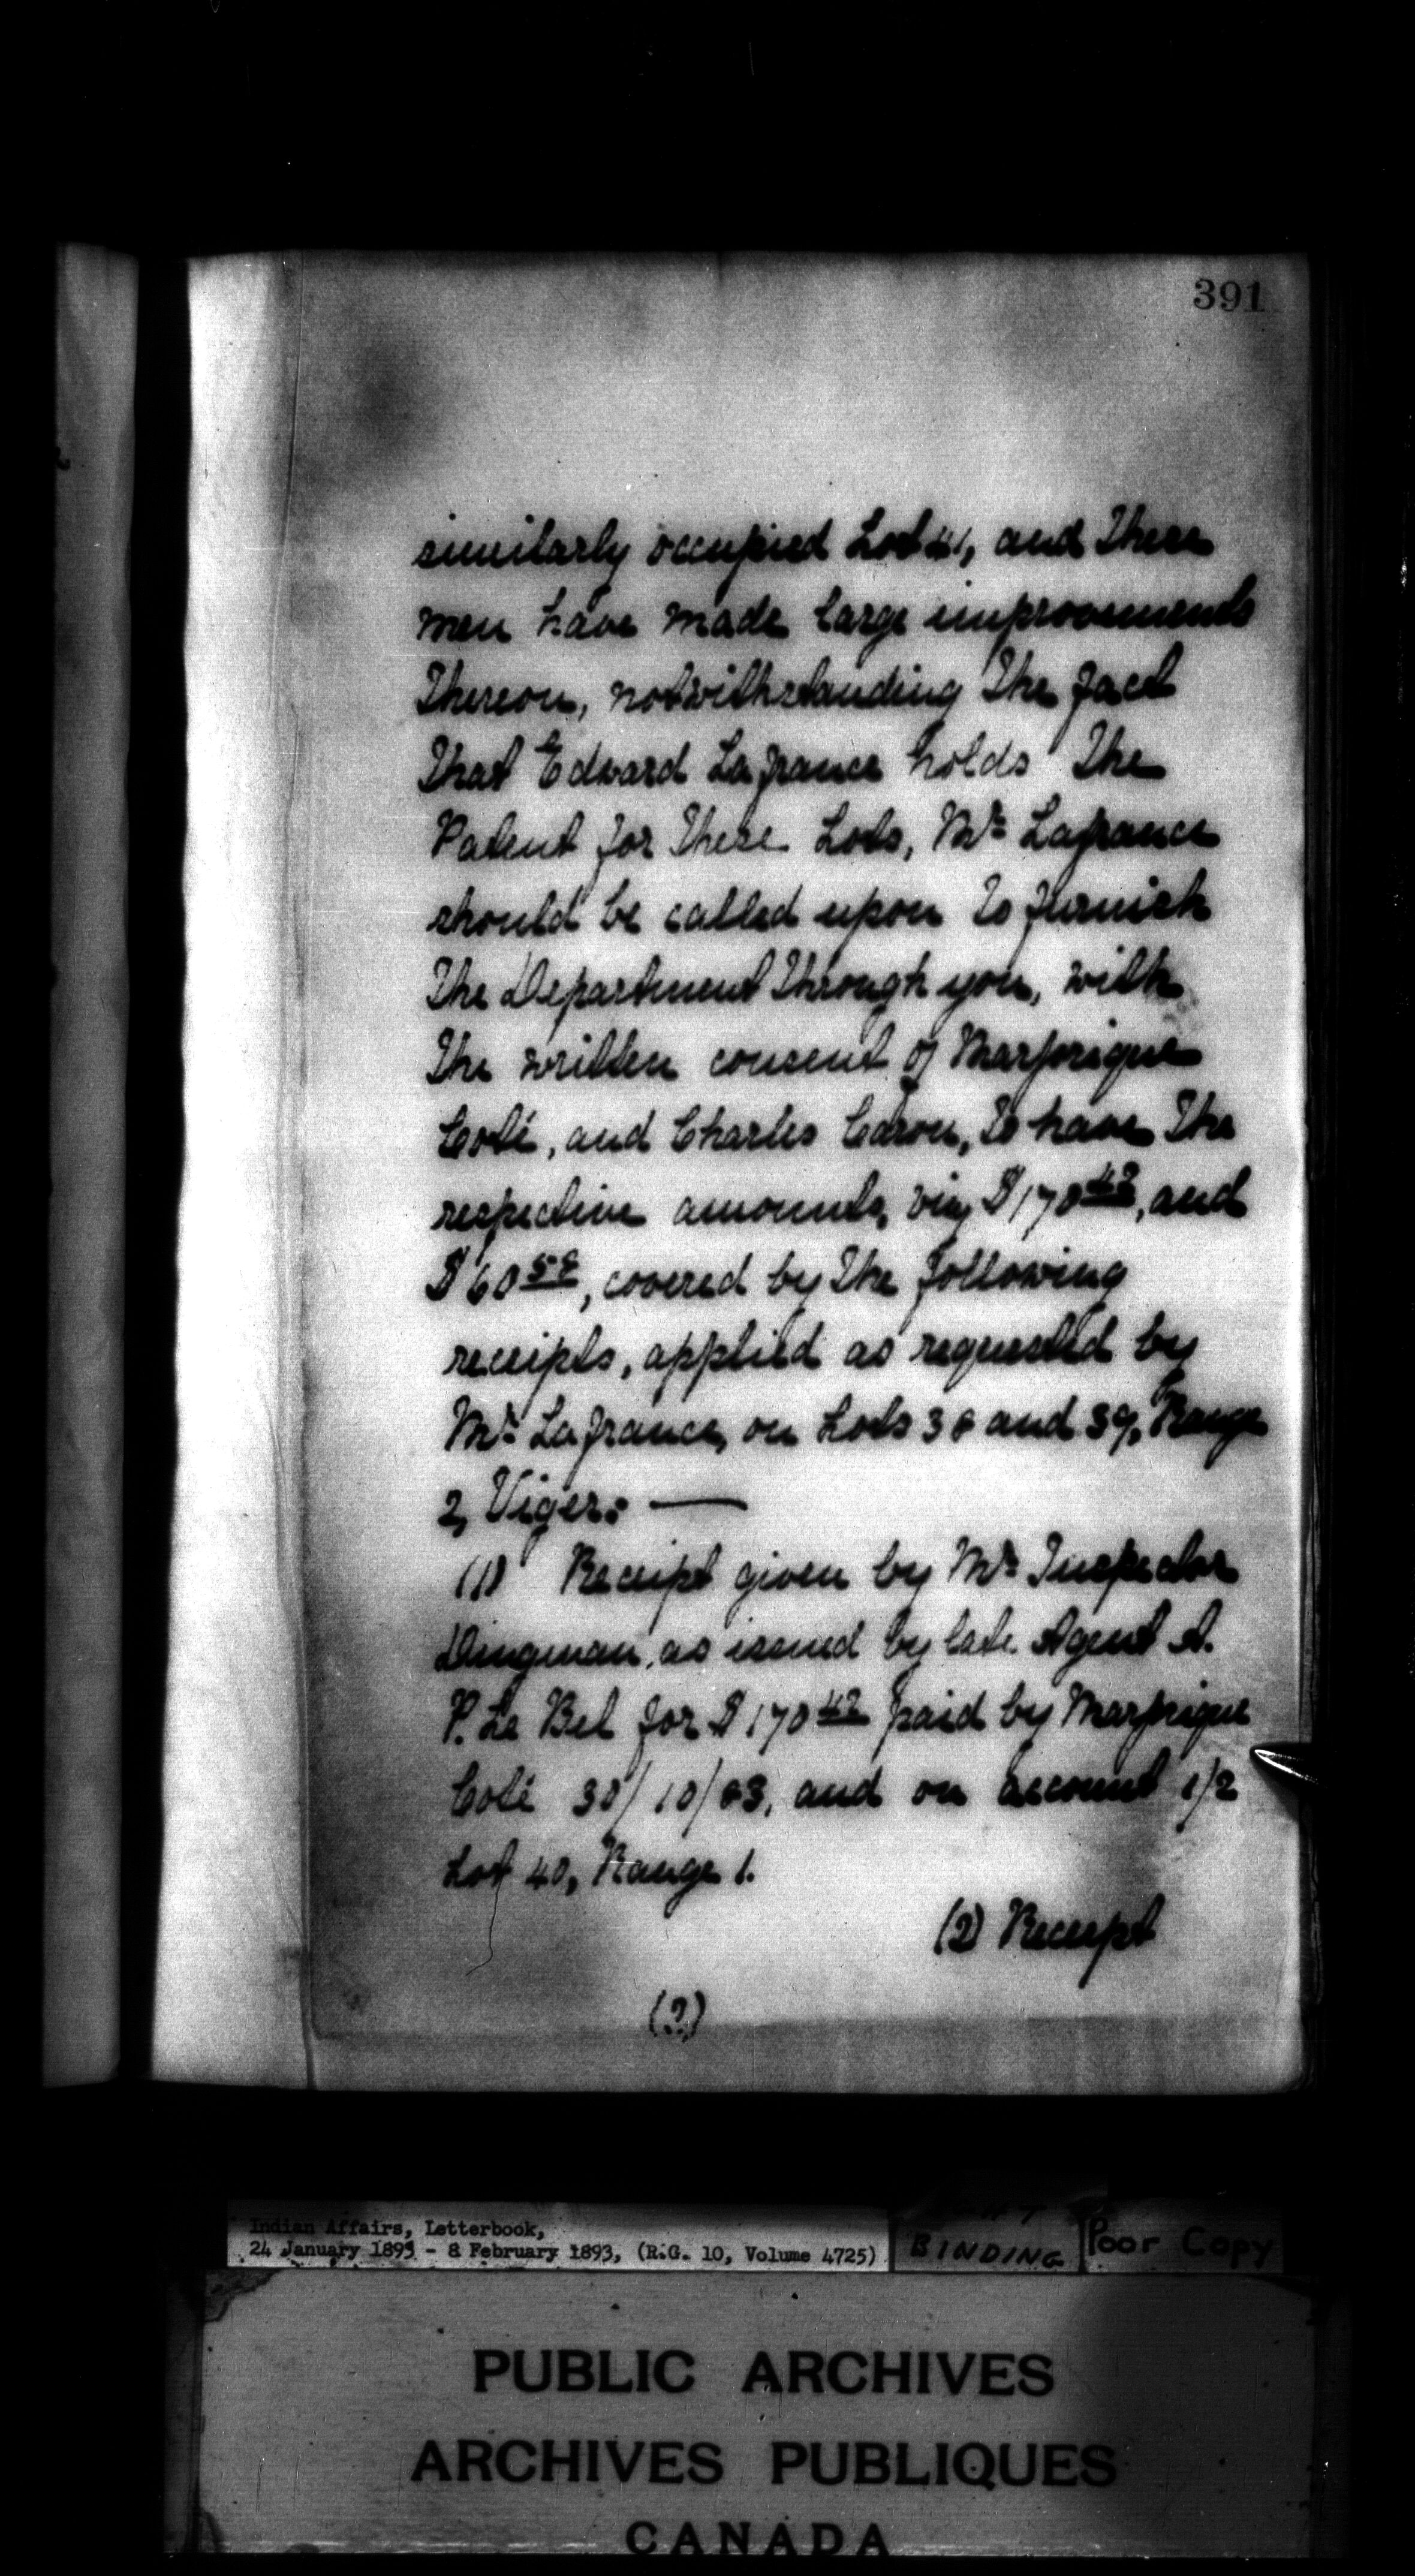 391
similarly occupied Lot 41, and these
men have made large improvements
thereon, notwithstanding the fact
that Edward Lafrance holds the
Patent for these Lots, Mr Lafrance
should be called upon to furnish
the Department through you, with
the written consent of Marjorique
Coté, and Charles Caron, to have the
respective amounts, viz $170 42, and
$60 58, covered by the following
receipts, applied as requested by
Mr Lafrance, on Lots 38 and 39, Range
2, Viger: —
(1) Receipt given by Mr Inspector
Dingman, as issued by late Agent A.
P. Le Bel for $170 42 paid by Marjorique
Coté 30/10/83, and on account 1/2
Lot 40, Range 1.
(2) Receipt
(2)
Indian Affairs, Letterbook,
24 January 1893 - 8 February 1893, (R.G. 10, Volume 4725)
BINDING
Poor Copy
PUBLIC ARCHIVES
ARCHIVES PUBLIQUES
CANADA